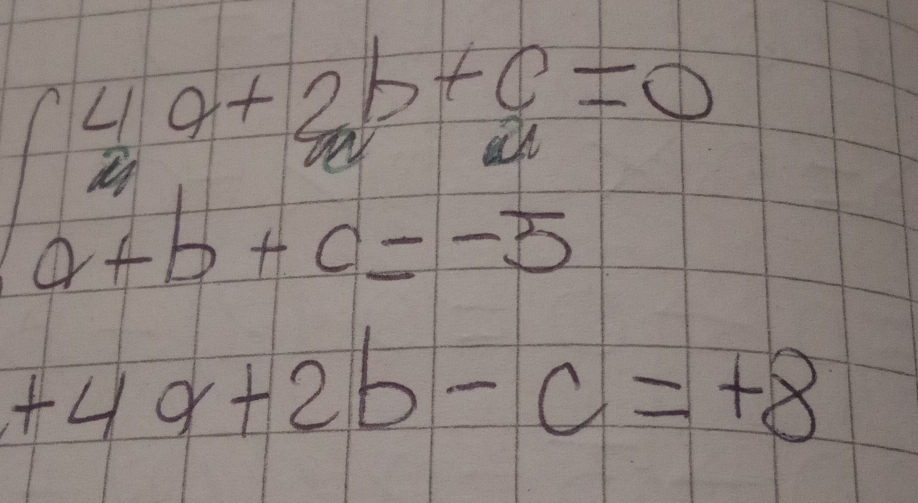 4a+2b+c=0
a+b+c=-5
+4a+2b-c=+8